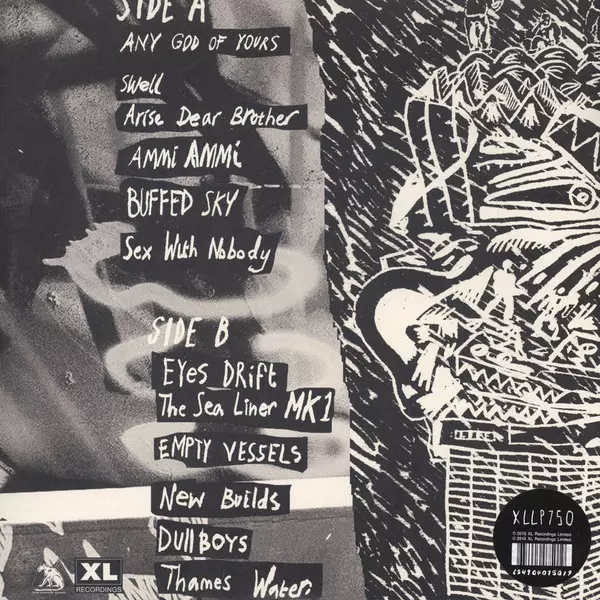 SIDE A
ANY GOD OF YOURS
Swell
Arise Dear Brother
AMMi AMMi
BUFFED SKY
Sex With Nobody
SIDE B
EYes DRift
The Sea Liner MK1
EMPTY VESSELS
New Builds
Dull BOYS
Thames Water.
XL
RECORDINGS
XLLP750
℗ 2016 XL Recordings Limited
© 2016 XL Recordings Limited